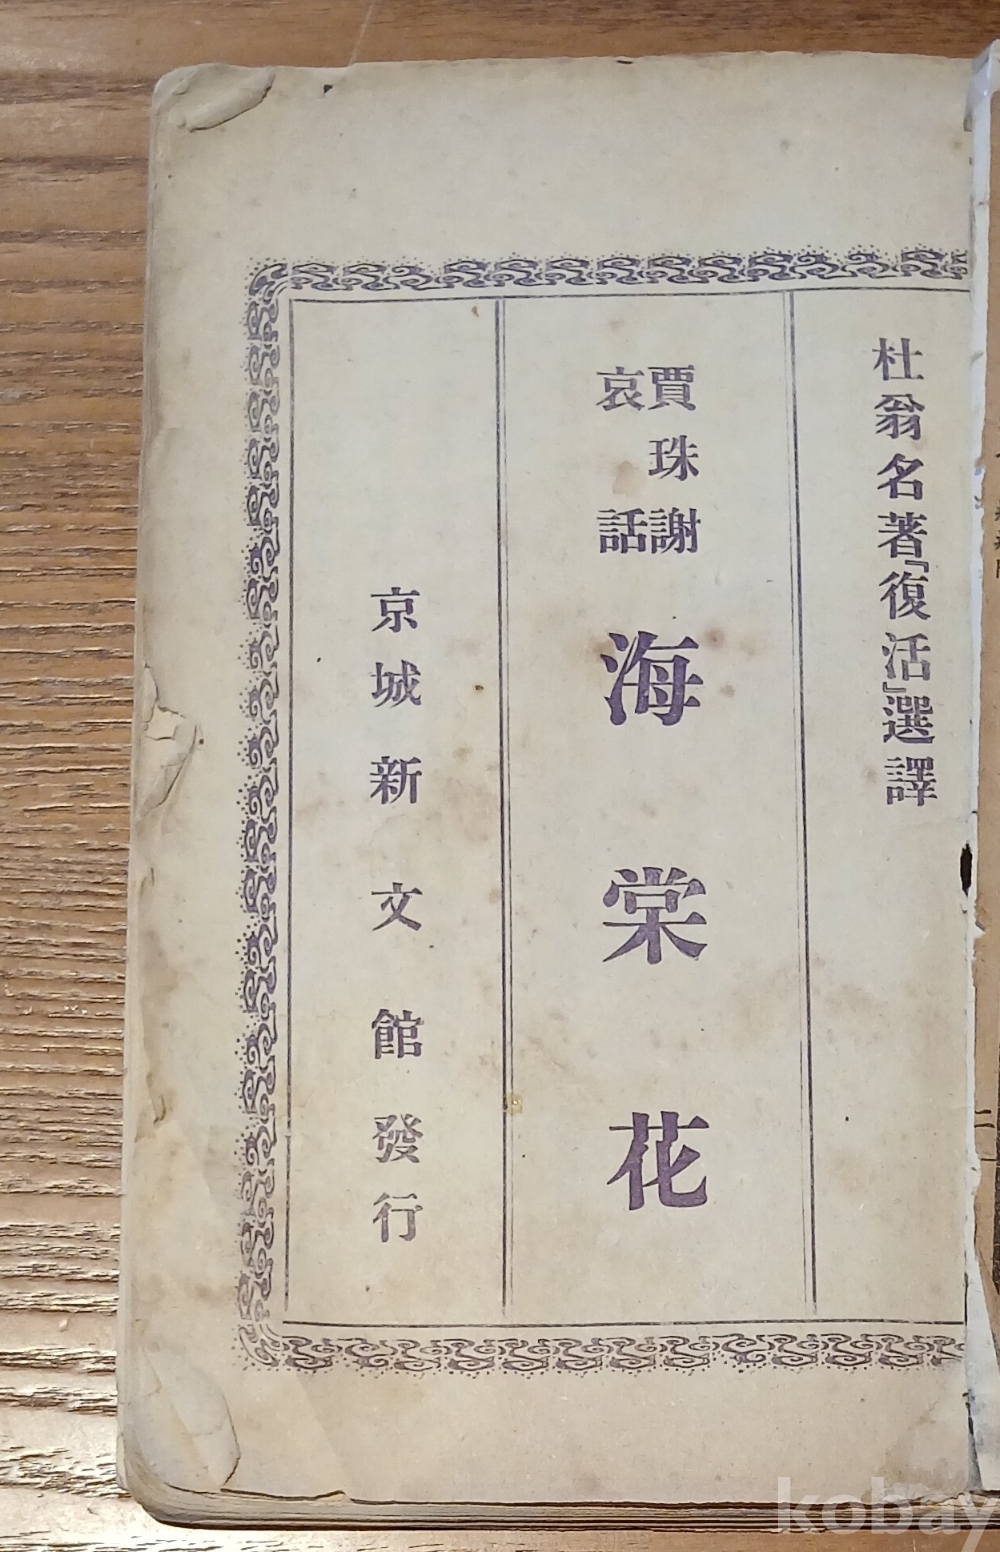 杜翁名著『復活』選譯
賈珠謝
哀話
海棠花
京城新文館發行
二
kobay